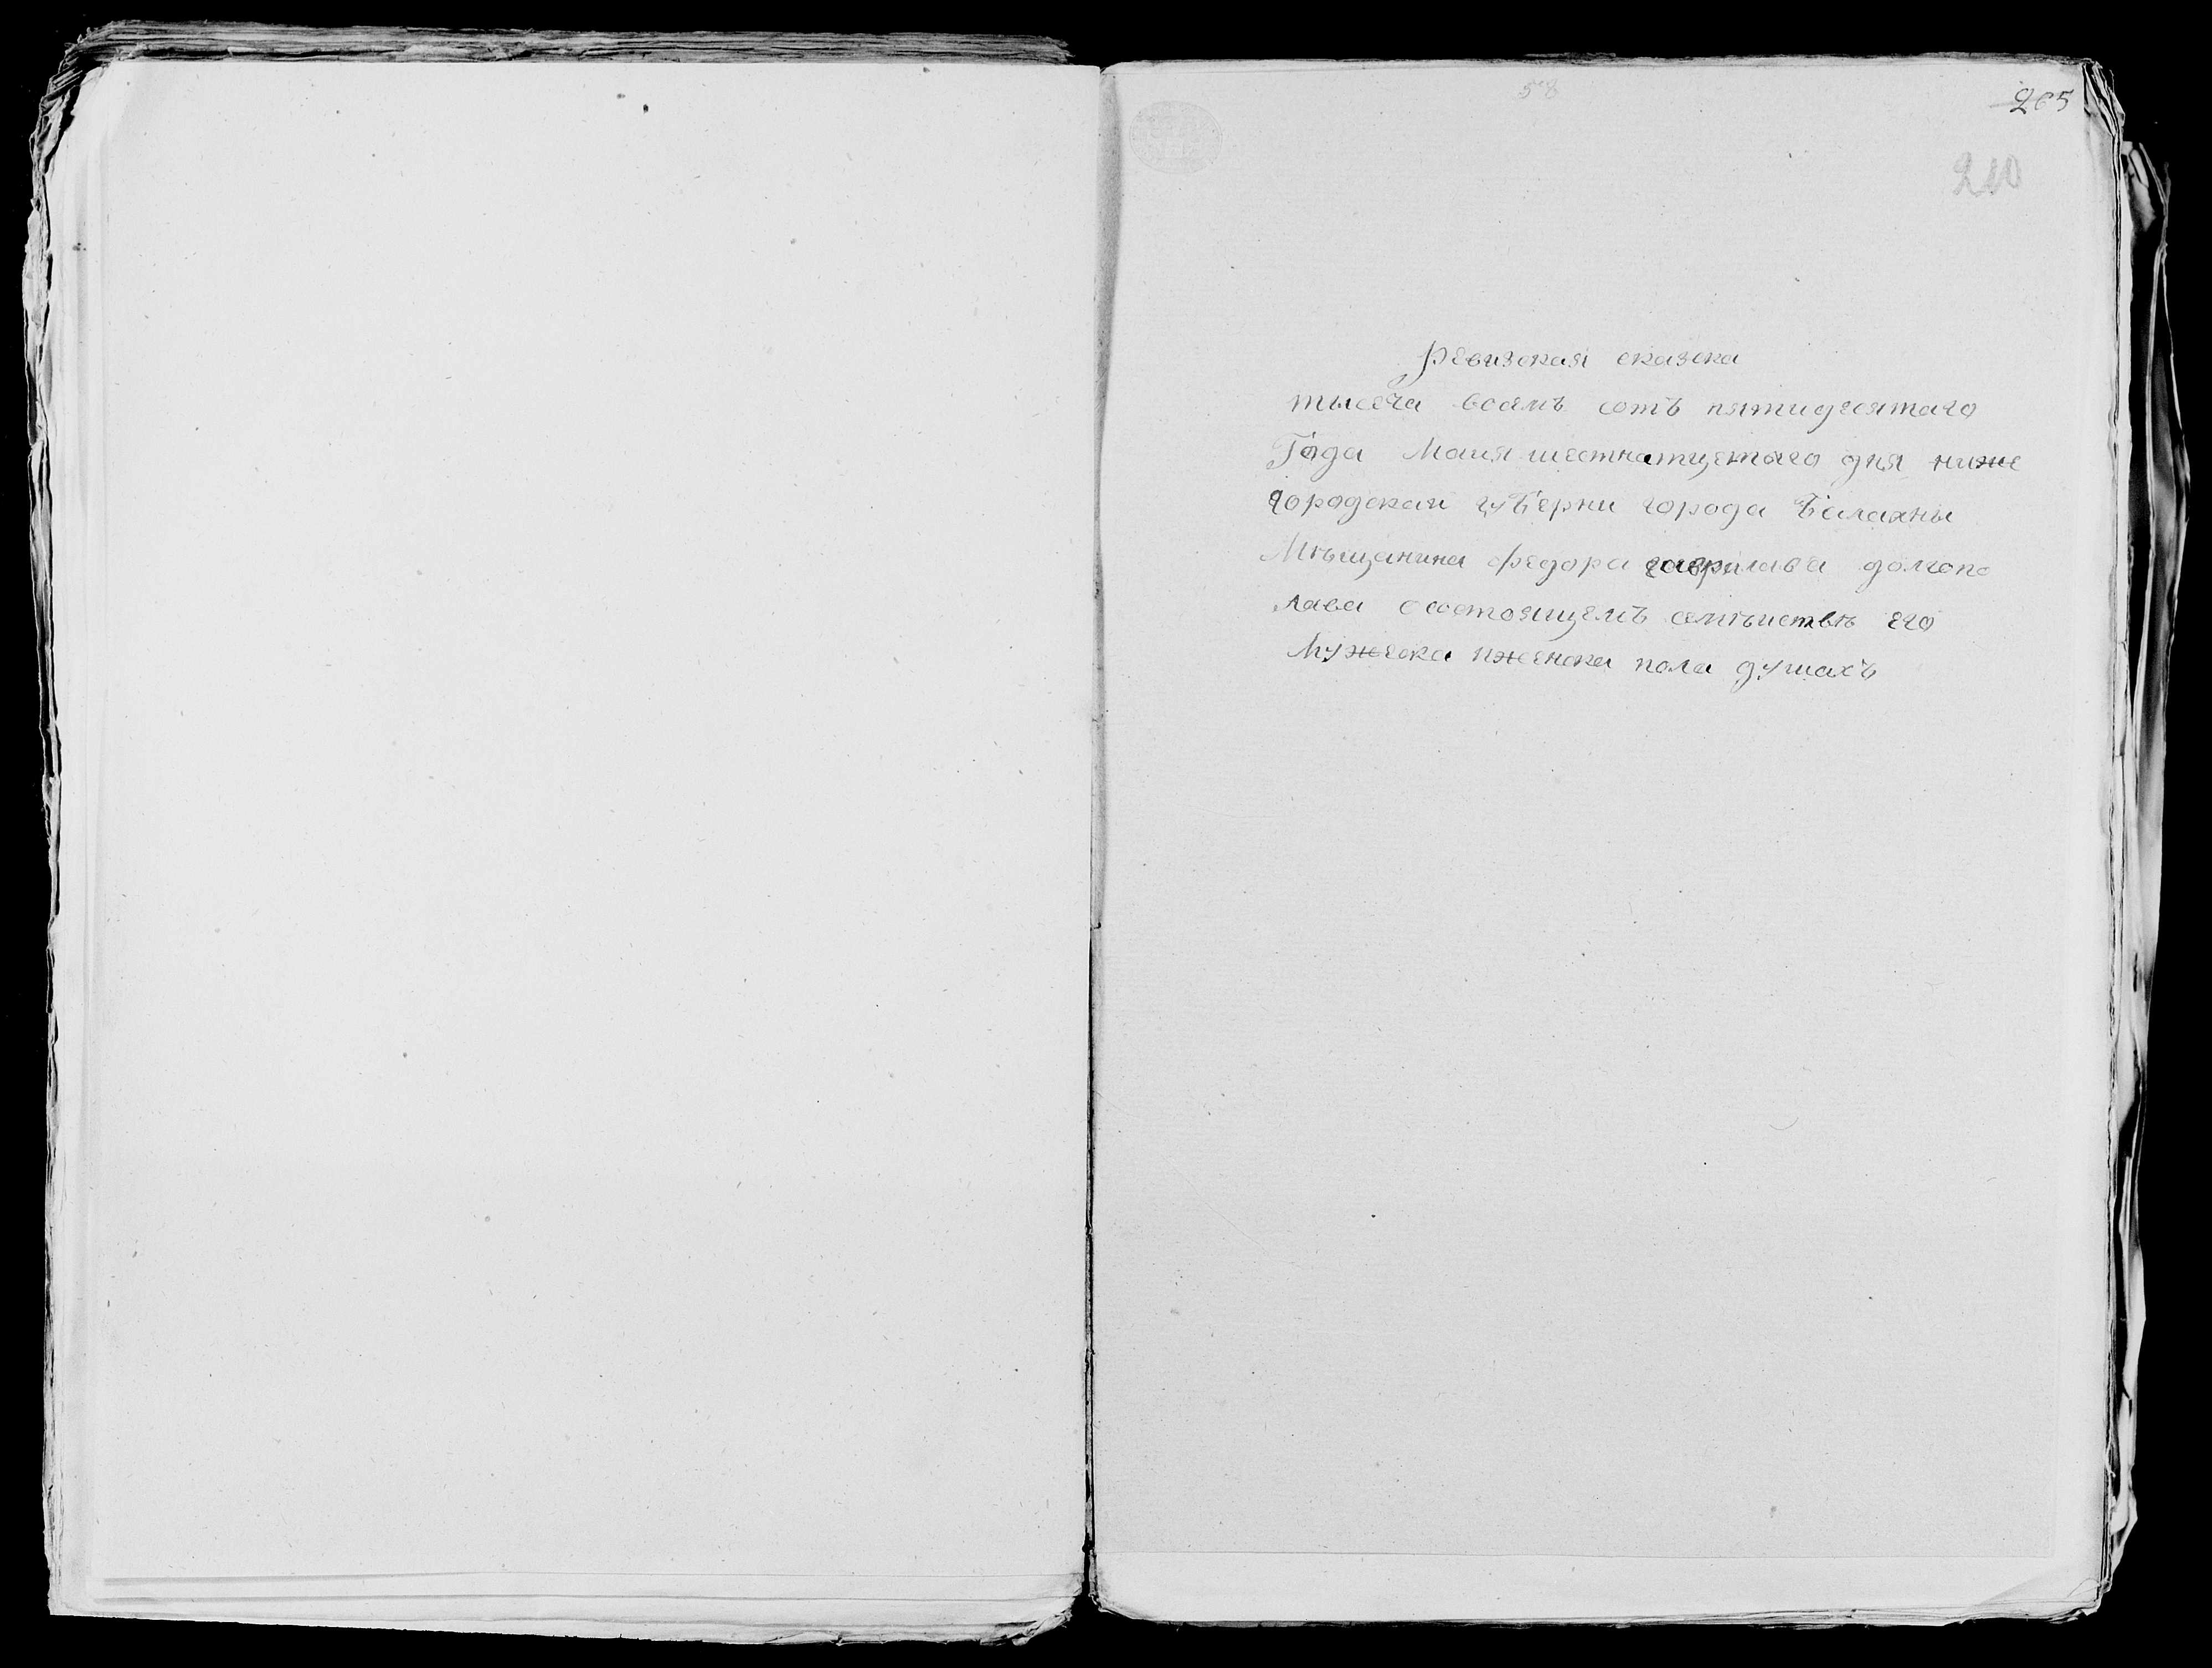 58
265
210
Ревизская сказка
тысеча восемь сотъ пятидесятаго
Года Маия шестнатцетаго дня ниже
городскаи губерни города Балахны
Мѣщанина федора гаврилава долгопо
лава осостоящемъ семѣиствѣ его
Мужеска иженска пола душахъ